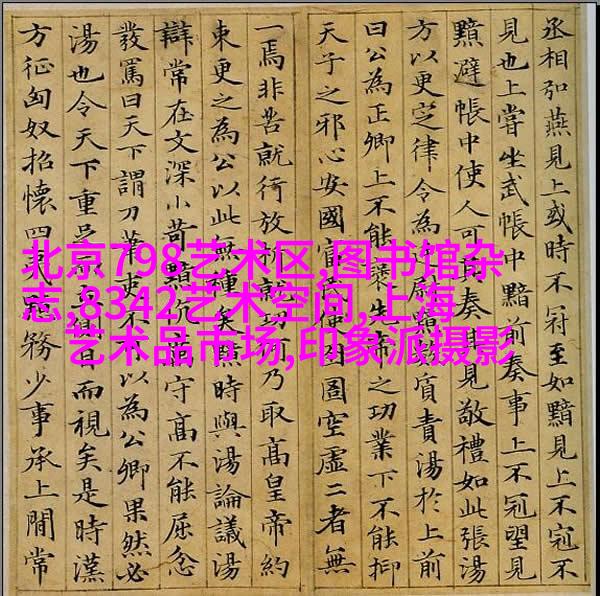 丞相弘燕見上或時不冠至如黯見上不冠不
見也上嘗坐武帳中黯前奏事上不冠望見
黯避帳中使人可其奏其見敬禮如此張湯
方以更定律令為廷尉黯數質責湯於上前
曰公為正卿上不能襃先帝之功業下不能抑
天子之邪心安國富民使囹圄空虛二者無
一焉非苦就行放析就功何乃取高皇帝約
束更之為公以此無種矣黯時與湯論議湯
辯常在文深小苛黯伉厲守高不能屈忿
發罵曰天下謂刀筆吏不可以為公卿果然必
湯也令天下重足而立側目而視矣是時漢
方征匈奴招懷四夷黯務少事承上間常
北京798艺术区,图书馆杂
志,8342艺术空间,上海
艺术品市场,印象派摄影